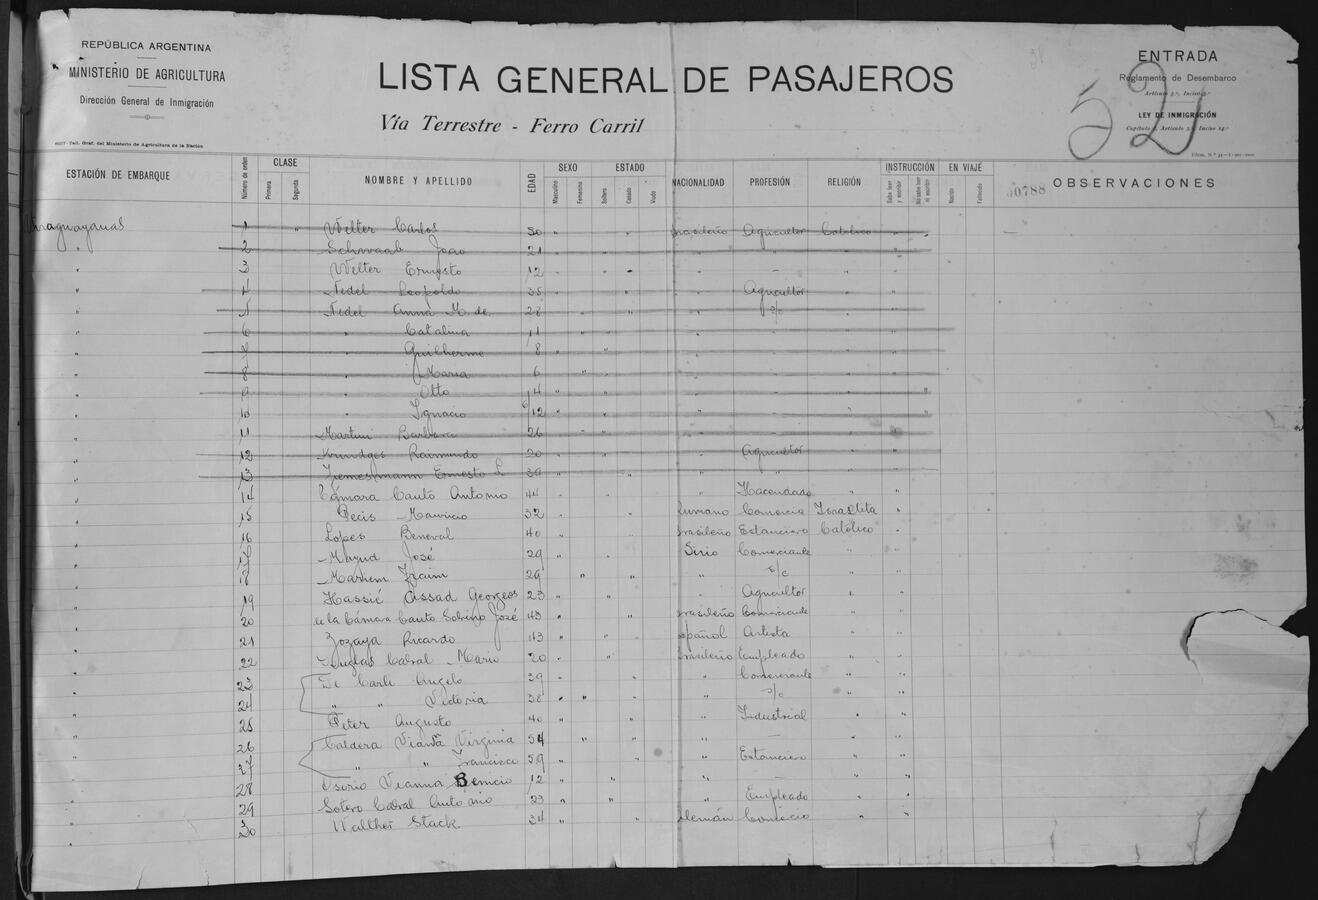 REPÚBLICA ARGENTINA
MINISTERIO DE AGRICULTURA
Dirección General de Inmigración
LISTA GENERAL DE PASAJEROS
Vía Terrestre - Ferro Carril
ENTRADA
Reglamento de Desembarco
Artículo 5.º, Inciso 3.º
LEY DE INMIGRACIÓN
52
6027-Tall. Gráf. del Ministerio de Agricultura de la Nación
ESTACIÓN DE EMBARQUE Número de orden CLASE Primera Segunda NOMBRE Y APELLIDO EDAD SEXO Masculino Femenino ESTADO Soltero Casado Viudo NACIONALIDAD PROFESIÓN RELIGIÓN INSTRUCCIÓN Sabe leer y escribir No sabe leer ni escribir EN VIAJE Nacido Fallecido 00788 OBSERVACIONES
1 " Welter Carlos 50 " " Agricultor Católico "
" 2 Schwaab Joao 21 " " " " " "
" 3 Welter Ernesto 12 " " " - " "
" 4 Nedel Leopoldo 35 " " " Agricultor " "
" 5 Nedel Anna M. de 28 " " " s/c " "
" 6 " Catalina 11 " " "
" 7 " Guilherme 8 " "
" 8 " Maria 6 "
" 9 " Otto 4 " " "
" 10 " Ignacio 6/12 " " " "
" 11 Martini Barbara 26 " "
" 12 Raimundo 20 " Agricultor " "
" 13 Ernesto L 39 " " " " "
" 14 Cámara Canto Antonio 44 " " " Hacendado " "
" 15 Pecis Mauricio 32 " " rumano Comercio Israelita "
" 16 Lopes Beneval 40 " " brasileño Estanciero Católico "
" 17 Mayud José 29 " " Sirio Comerciante " "
" 18 Mariem 26 " " " s/c " "
" 19 Hassié Assad Georgeos 23 " " " Agricultor " "
" 20 de la Cámara Canto Sobrino José 43 " " brasileño Comerciante " "
" 21 Zozaya Ricardo 43 " " español Artista " "
" 22 Cabral Mario 20 " " brasileño Empleado " "
" 23 De Carli Angelo 39 " " " Comerciante " "
" 24 " " Victoria 38 " " " s/c " "
" 25 Peter Augusto 40 " " " Industrial " "
" 26 Caldera Vianna Virginia 54 " " " - " "
" 27 " " Francisco 59 " " Estanciero " "
" 28 Osorio Vianna Benicio 12 " " " - " "
" 29 Sotero Cabral Antonio 23 " " " Empleado " "
" 30 Walther Stack 34 " " alemán Comercio " "